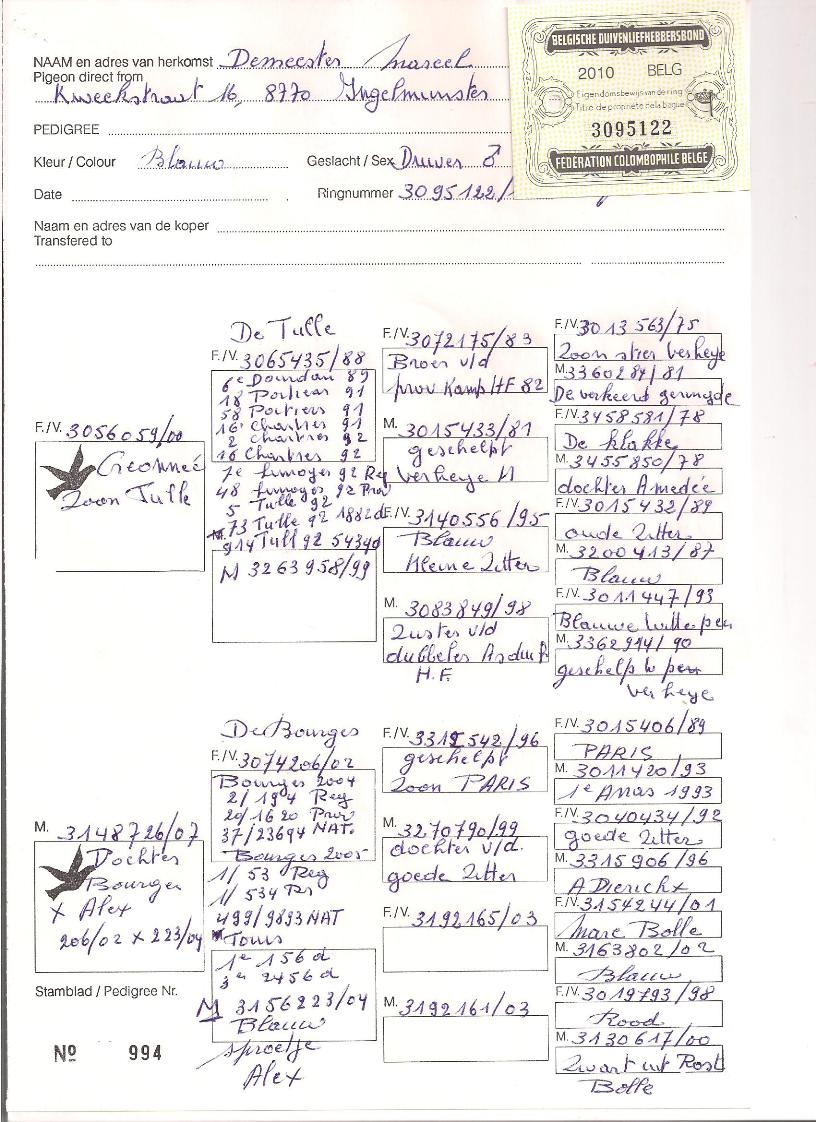 NAAM en adres van herkomst Demeester Marcel
Pigeon direct from
Kweekstraat 16, 8770 Ingelmunster
PEDIGREE
Kleur / Colour Blauw Geslacht / Sex Duiver ♂
Date Ringnummer 3095122/
Naam en adres van de koper
Transfered to
BELGISCHE DUIVENLIEFHEBBERSBOND
2010 BELG
Eigendomsbewijs van de ring
Titre de propriété de la bague
3095122
FÉDÉRATION COLOMBOPHILE BELGE
F./V. 3056059/00
Geonneé
Zoon Tulle
De Tulle
F./V. 3065435/88
6e Dourdan 89
18 Poitiers 91
58 Poitiers 91
16 Chartres 91
2 Chartres 92
16 Chartres 92
7e fumoyes 92 Reg
48 fumoyes 92 Prov
5 Tulle 92
73 Tulle 92 1882 d
914 Tull 92 5439d
M.
M 3263958/99
F./V. 3072175/83
Broer v/d
prov Kamp HF 82
M. 3015433/81
geschelpt
Verheye H
F./V. 3140556/95
Blauw
Kleine Zitter
M. 3083849/98
Zuster v/d
dubbeles Asduif
H.F.
F./V. 3013563/75
Zoon stier verheye
M. 3360284/81
De verkeerd geringde
F./V. 3458581/78
De klakke
M. 3455850/78
dochter Amedée
F./V. 3015432/89
oude Zitter
M. 3200413/87
Blauw
F./V. 3011447/93
Blauwe Witte pen
M. 3362914/90
geschelp w pen
verheye
M. 3148726/07
Dochter
Bourges
x Alex
206/02 x 223/04
Stamblad / Pedigree Nr.
Nº 994
De Bourges
F./V. 3074206/02
Bourges 2004
2/194 Reg
20/1620 Prov
37/23694 NAT.
Bourges 2005
1/53 Reg
1/534 Pr
499/9893 NAT
M. Tours
1e 156 d
3e 2456 d
M 3156223/04
Blauw
sproetje
Alex
F./V. 3312542/96
geschelpt
Zoon PARIS
M. 3270790/99
dochter v/d.
goede Zitter
F./V. 3192165/03
M. 3192161/03
F./V. 3015406/89
PARIS
M. 3011420/93
1e Arras 1993
F./V. 3040434/92
goede Zitter
M. 3315906/96
A Dierickx
F./V. 3154244/01
Marc Bolle
M. 3163802/02
Blauw
F./V. 3019793/98
Rood
M. 3130617/00
Zwart wt Rost
Bolle